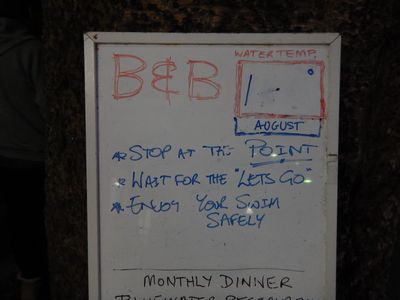 WATER TEMP.
B&B
AUGUST
* STOP AT THE POINT
* WAIT FOR THE "LETS GO"
* ENJOY YOUR SWIM
SAFELY
MONTHLY DINNER
BLUEWATER RESTAURANT